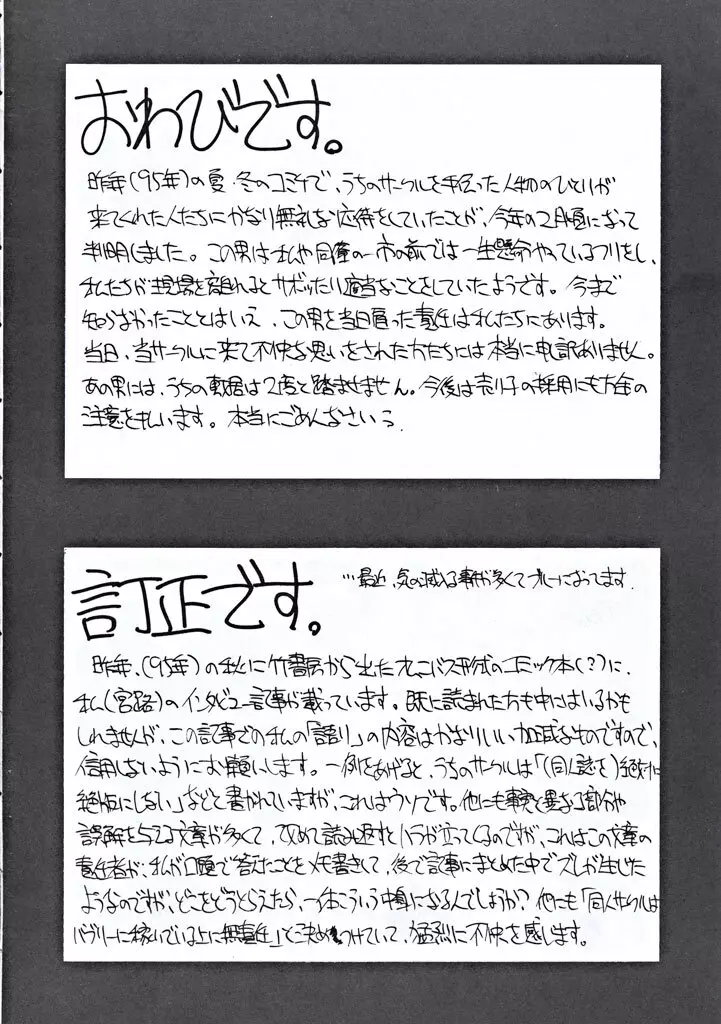 おわびです。
昨年(95年)の夏・冬のコミケで、うちのサークルを手伝った人物のひとりが
来てくれた人たちにかなり無礼な応待をしていたことが、今年の2月頃になって
判明しました。この男は私や同僚の一市の前では一生懸命やっているフリをし、
私たちが現場を離れるとサボッたり適当なことをしていたようです。今まで
知らなかったこととはいえ、この男を当日雇った責任は私たちにあります。
当日、当サークルに来て不快な思いをされた方たちには本当に申し訳ありません。
あの男には、うちの敷居は2度と踏ませません。今後は売り子の採用にも万全の
注意を払います。本当にごめんなさい
訂正です。
…最近、気の滅入る事が多くてブルーになってます。
昨年、(95年)の秋に竹書房から出たオムニバス形式のコミック本(?)に、
私(宮路)のインタビュー記事が載っています。既に読まれた方も中にはいるかも
しれませんが、この記事での私の「語り」の内容はかなりいい加減なものですので、
信用しないようにお願いします。一例をあげると、うちのサークルは「(同人誌を)絶対に
絶版にしない」などと書かれていますが、これはウソです。他にも事実と異なる部分や
誤解を与える文章が多くて、改めて読み返すとハラが立ってくるのですが、これはこの文章の
責任者が、私が口頭で答えたことをメモ書きして、後で記事にまとめた中でズレが生じた
ようなのですが、どこをどうとらえたら、一体こういう中身になるんでしょうか?他にも「同人サークルは
バブリーに稼いでいる上に無責任」と決めつけていて、猛烈に不快を感じます。